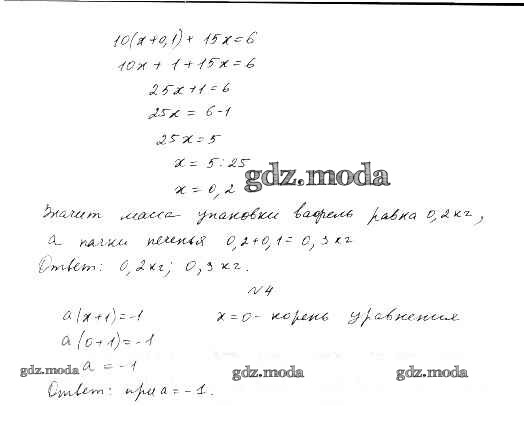 10(x+0,1)+15x=6
10x+1+15x=6
25x+1=6
25x=6-1
25x=5
x=5:25
x=0,2
gdz.moda
Значит масса упаковки вафель равна 0,2 кг,
а пачки печенья 0,2+0,1=0,3 кг
Ответ: 0,2 кг; 0,3 кг.
N4
a(x+1)=-1 x=0- корень уравнения
a(0+1)=-1
a=-1
gdz.moda gdz.moda gdz.moda
Ответ: при a=-1.